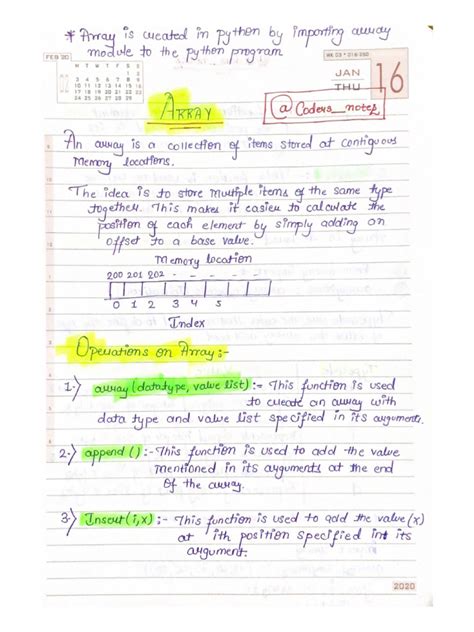 * Array is created in python by importing array
module to the python program
FEB '20
M T W T F S S
1 2
3 4 5 6 7 8 9
10 11 12 13 14 15 16
17 18 19 20 21 22 23
24 25 26 27 28 29
WK 03 • 016-350
JAN
THU
16
ARRAY
@Coders_notes
An array is a collection of items stored at contiguous
Memory locations.
The idea is to store multiple items of the same type
together. This makes it easier to calculate the
position of each element by simply adding an
offset to a base value.
Memory location
200 201 202 - - - - -
0 1 2 3 4 5
Index
Operations on Array:-
1.) array(datatype, value list):- This function is used
to create an array with
data type and value list specified in its arguments.
2.) append():- This function is used to add the value
mentioned in its arguments at the end
of the array.
3.) Insert(i,x):- This function is used to add the value(x)
at ith position specified int its
argument.
2020